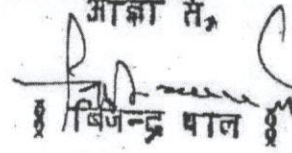 आज्ञा से,
( बिजेन्द्र पाल )